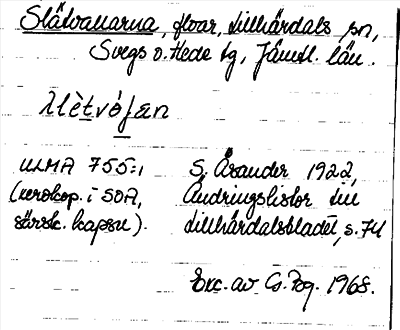 Slätvallarna, flvar, Lillhärdals sn,
Svegs o. Hede tg, Jämtl. län.
ULMA 755:1 S. Åsander 1922,
(xerokop. i SOA, Ändringslistor till
särsk. kapsel). Lillhärdalsbladet, s. 74
Exc. av G. Pog. 1968.